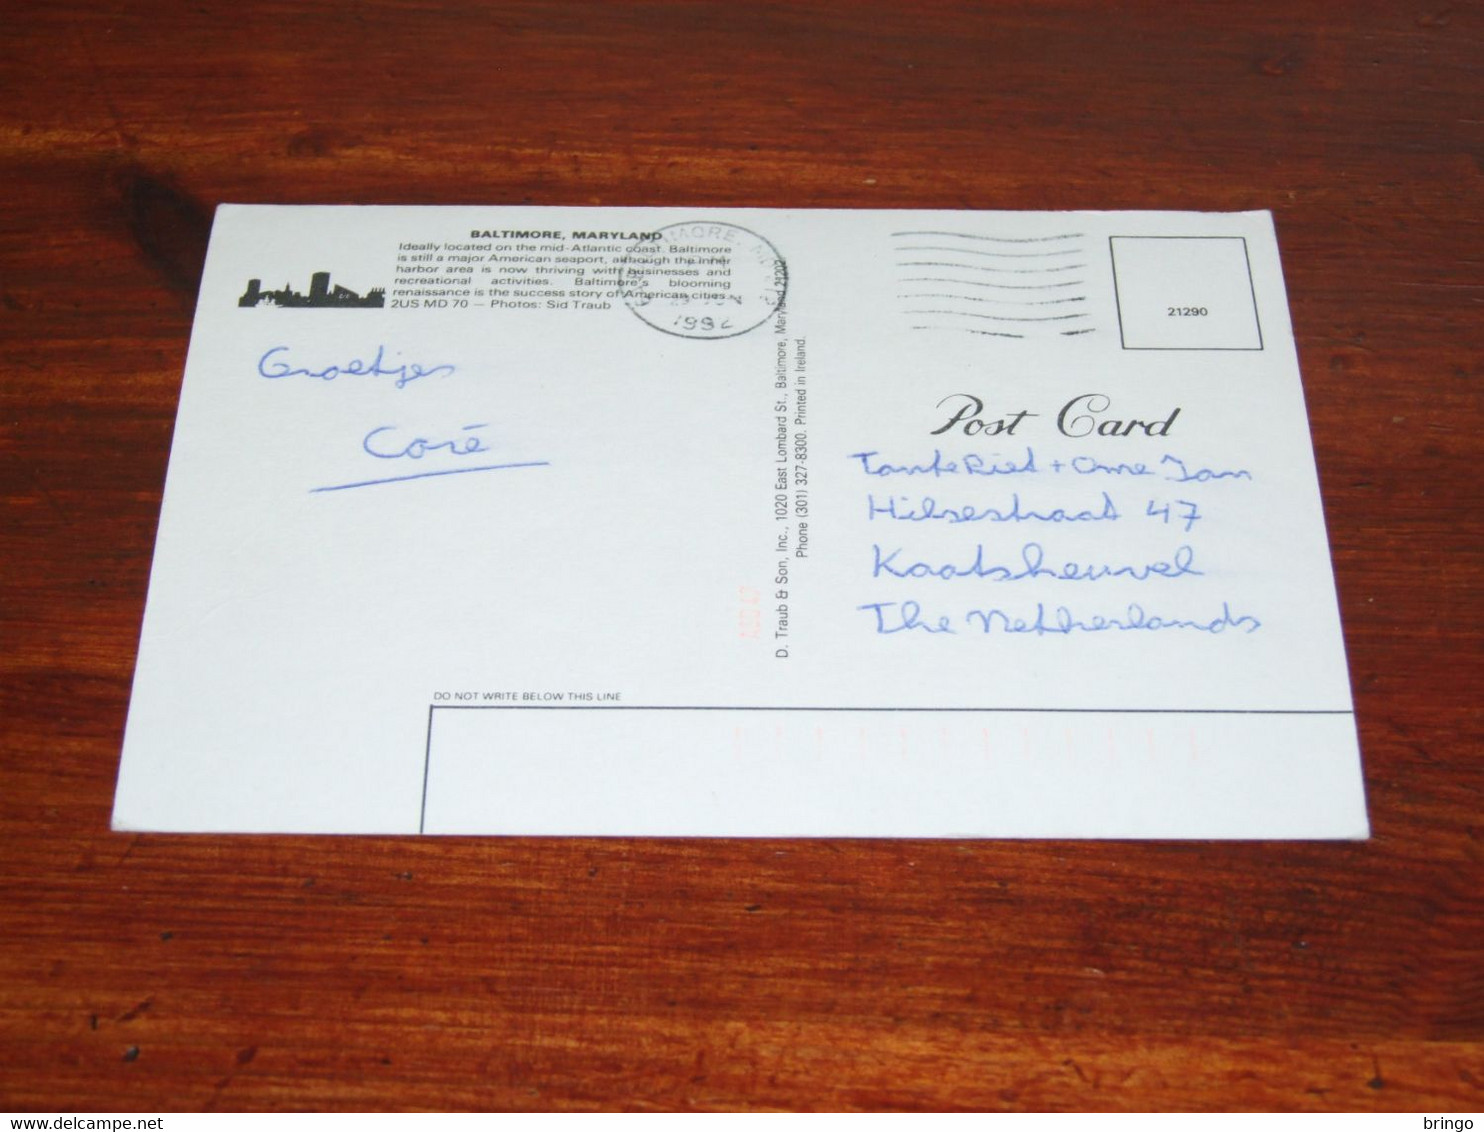 BALTIMORE, MARYLAND
Ideally located on the mid-Atlantic coast. Baltimore
is still a major American seaport, although the inner
harbor area is now thriving with businesses and
recreational activities. Baltimore's blooming
renaissance is the success story of American cities.
2US MD 70 — Photos: Sid Traub
1992
21290
Groetjes
Coré
D. Traub & Son, Inc., 1020 East Lombard St., Baltimore, Maryland 21202
Phone (301) 327-8300. Printed in Ireland.
Post Card
Tante Riet + Ome Jan
Hilsestraat 47
Kaatsheuvel
The Netherlands
DO NOT WRITE BELOW THIS LINE
www.delcampe.net
bringo